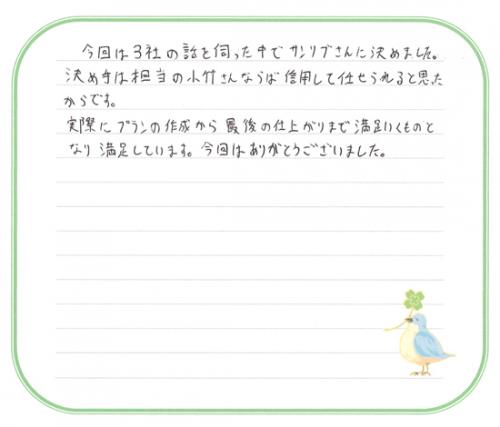 今回は3社の話を伺った中でサンリブさんに決めました。
決め手は担当の小竹さんならば信用して任せられると思た
からです。
実際にプランの作成から最後の仕上がりまで満足いくものと
なり満足しています。今回はありがとうございました。